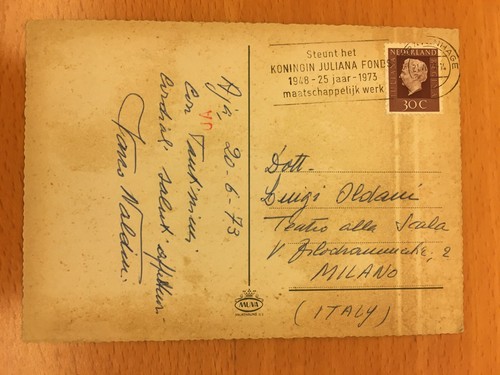 Aja, 20-6-73
Con tantissimi
Cordiali saluti affettuosi
Steunt het
KONINGIN JULIANA FONDS
1948 - 25 jaar - 1973
maatschappelijk werk
NEDERLAND
30 C
Dott.
Luigi Oldani
Teatro alla Scala
V. Filodrammatici, 2
MILANO
(ITALY)
MUVA